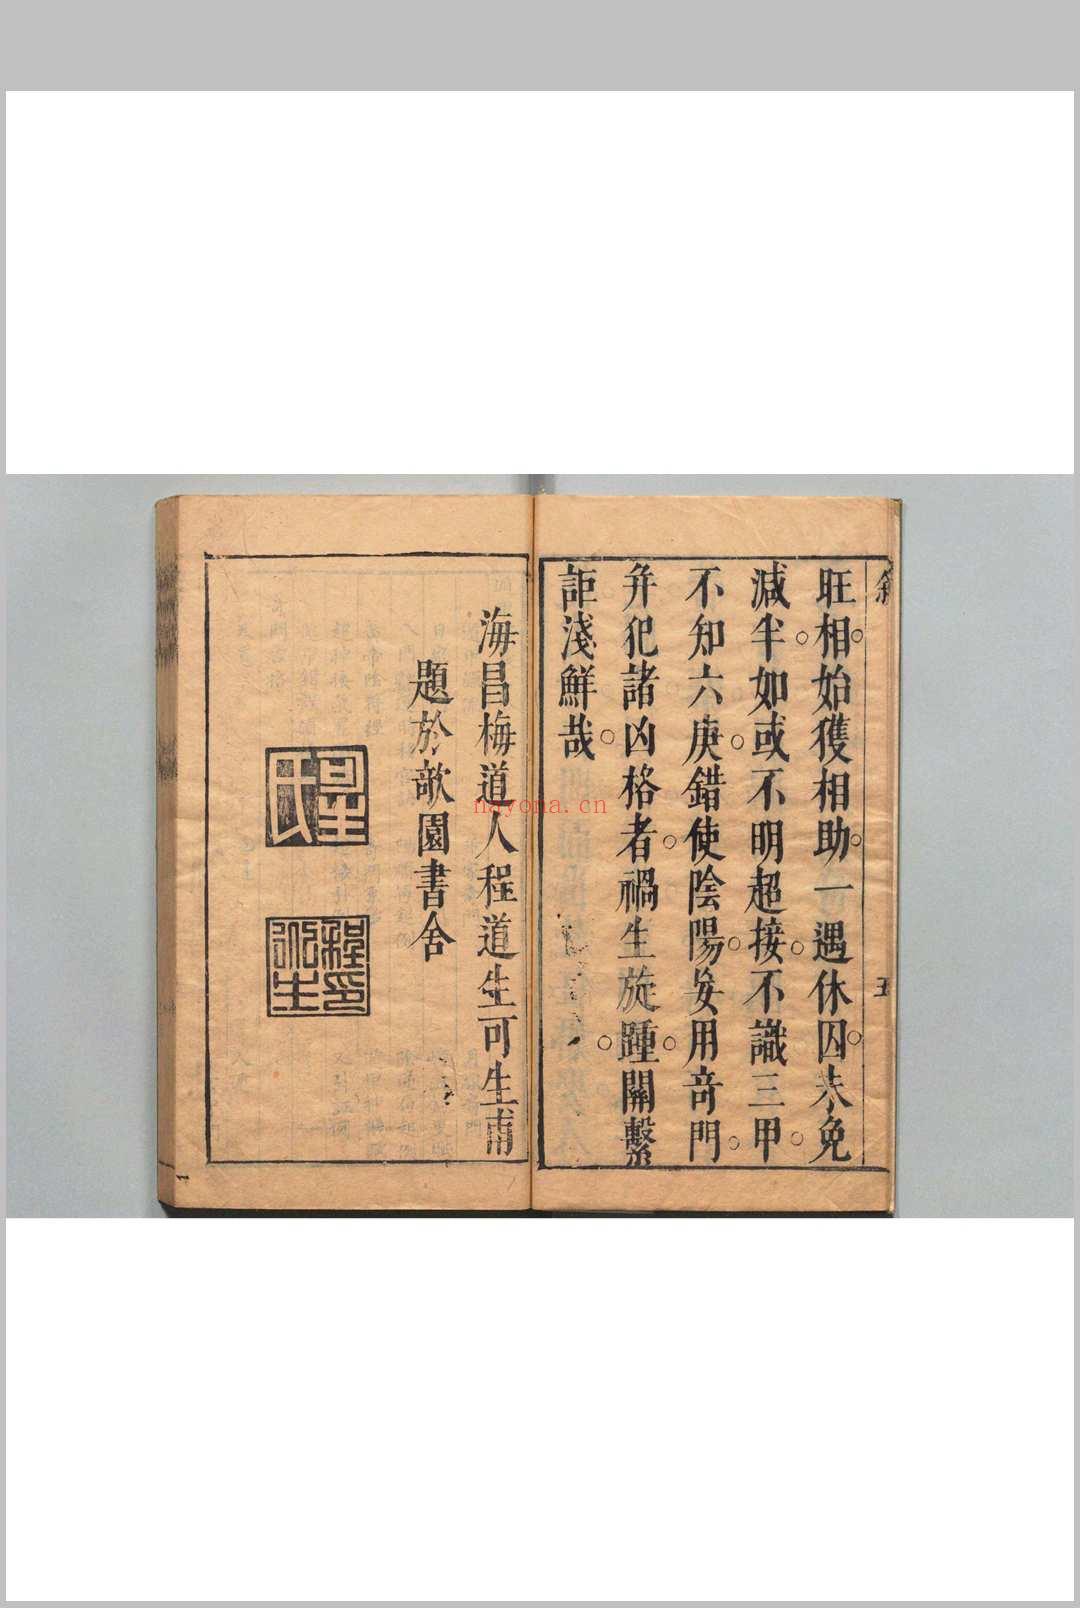 敘
五
旺相始獲相助一遇休囚未免
減半如或不明超接不識三甲
不知六庚錯使陰陽妄用竒門
弁犯諸凶格者禍生旋踵關繫
詎淺鮮哉
海昌梅道人程道生可生甫
題於歊園書舍
程印
nayona.cn